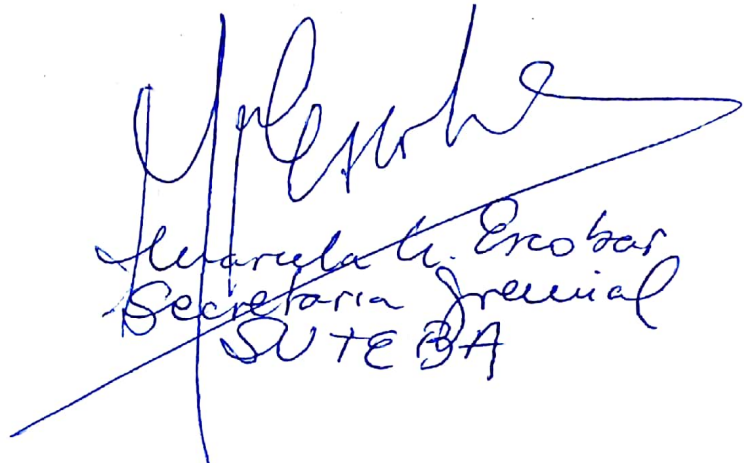 Marcela A. Escobar
Secretaria Gremial
SUTEBA